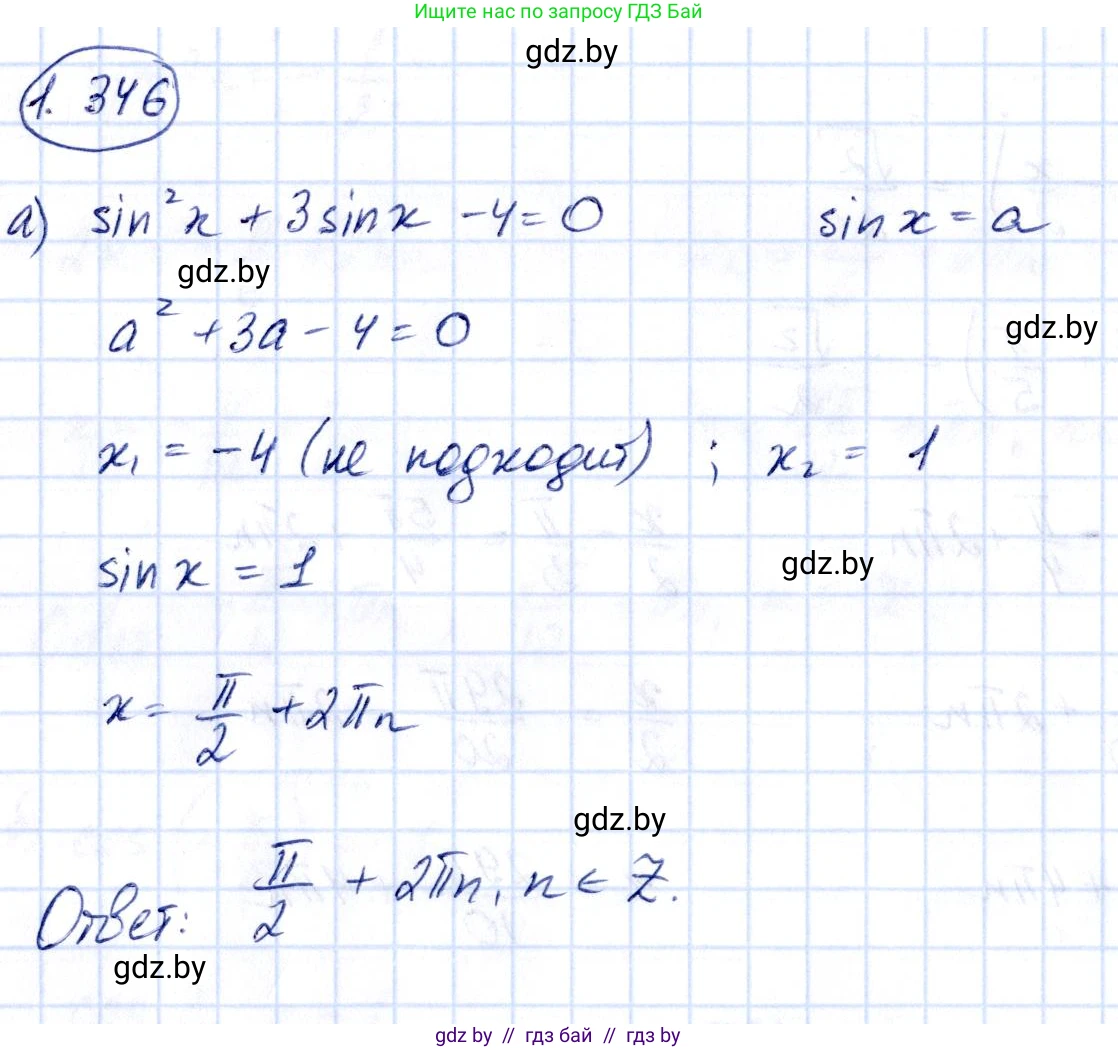 Ищите нас по запросу ГДЗ Бай
gdz.by
1. 346
а) sin²x + 3sinx - 4 = 0 sin x = a
gdz.by
a² + 3a - 4 = 0
gdz.by
x₁ = -4 (не подходит) ; x₂ = 1
sin x = 1
gdz.by
x = π/2 + 2πn
gdz.by
Ответ: π/2 + 2πn, n ∈ Z.
gdz.by
gdz by // гдз бай // гдз by